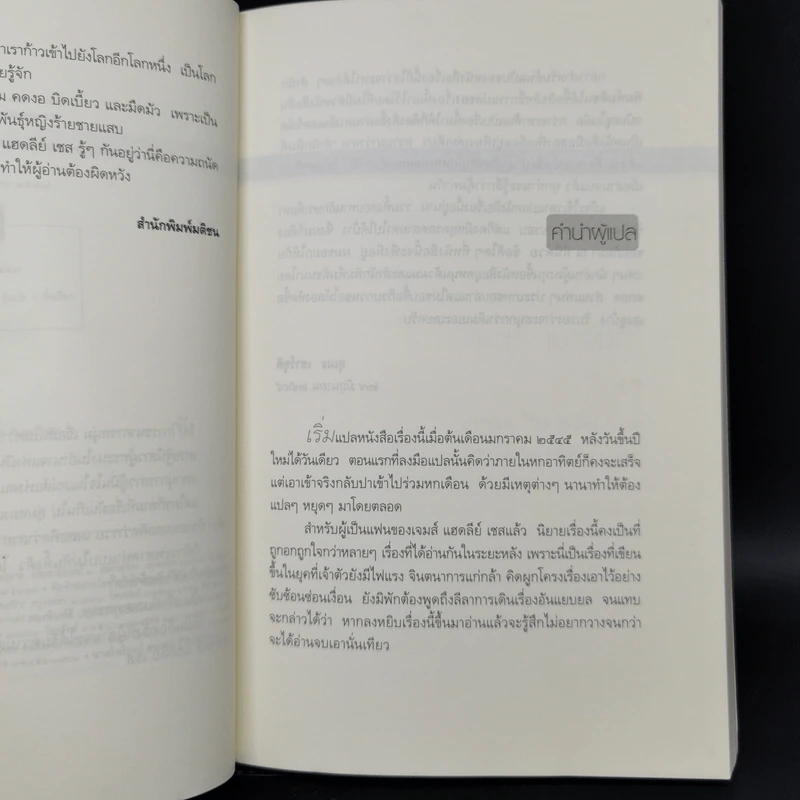 าเราก้าวเข้าไปยังโลกอีกโลกหนึ่ง เป็นโลก
ยรู้จัก
ม คดงอ บิดเบี้ยว และมืดมัว เพราะเป็น
พันธุ์หญิงร้ายชายแสบ
แฮดลีย์ เชส รู้ๆ กันอยู่ว่านี่คือความถนัด
ทำให้ผู้อ่านต้องผิดหวัง
สำนักพิมพ์มติชน
คำนำผู้แปล
เริ่มแปลหนังสือเรื่องนี้เมื่อต้นเดือนมกราคม ๒๕๔๕ หลังวันขึ้นปี
ใหม่ได้วันเดียว ตอนแรกที่ลงมือแปลนั้นคิดว่าภายในหกอาทิตย์ก็คงจะเสร็จ
แต่เอาเข้าจริงกลับปาเข้าไปร่วมหกเดือน ด้วยมีเหตุต่างๆ นานาทำให้ต้อง
แปลๆ หยุดๆ มาโดยตลอด
สำหรับผู้เป็นแฟนของเจมส์ แฮดลีย์ เชสแล้ว นิยายเรื่องนี้คงเป็นที่
ถูกอกถูกใจกว่าหลายๆ เรื่องที่ได้อ่านกันในระยะหลัง เพราะนี่เป็นเรื่องที่เขียน
ขึ้นในยุคที่เจ้าตัวยังมีไฟแรง จินตนาการแก่กล้า คิดผูกโครงเรื่องเอาไว้อย่าง
ซับซ้อนซ่อนเงื่อน ยังมิพักต้องพูดถึงลีลาการเดินเรื่องอันแยบยล จนแทบ
จะกล่าวได้ว่า หากลงหยิบเรื่องนี้ขึ้นมาอ่านแล้วจะรู้สึกไม่อยากวางจนกว่า
จะได้อ่านจบเอานั่นเทียว